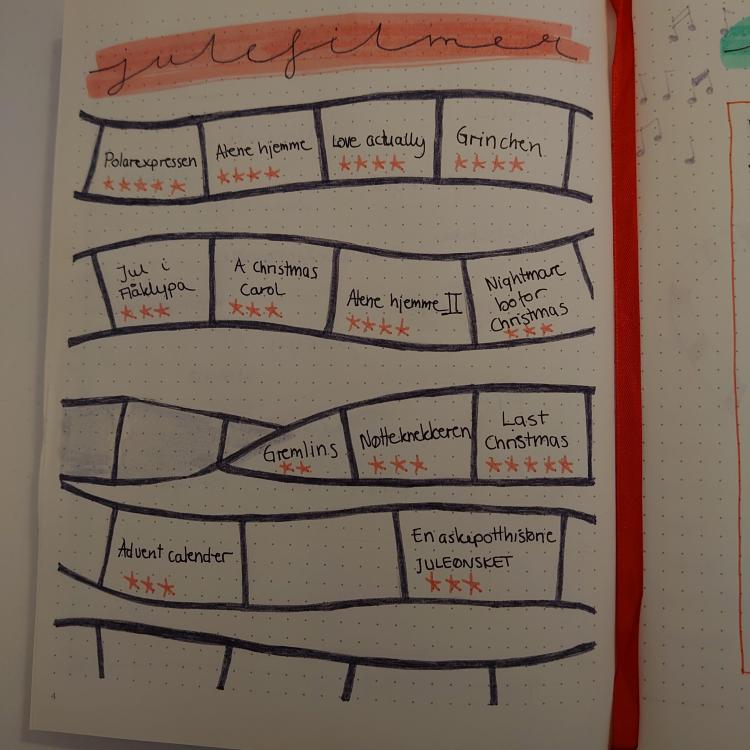 julefilmer
Polarexpressen
Alene hjemme
Love actually
Grinchen
Jul i
Flåklypa
A Christmas
Carol
Alene hjemme II
Nightmare
before
Christmas
Gremlins
Nøtteknekkeren
Last
Christmas
Advent calender
En askepotthistorie
JULEØNSKET
4